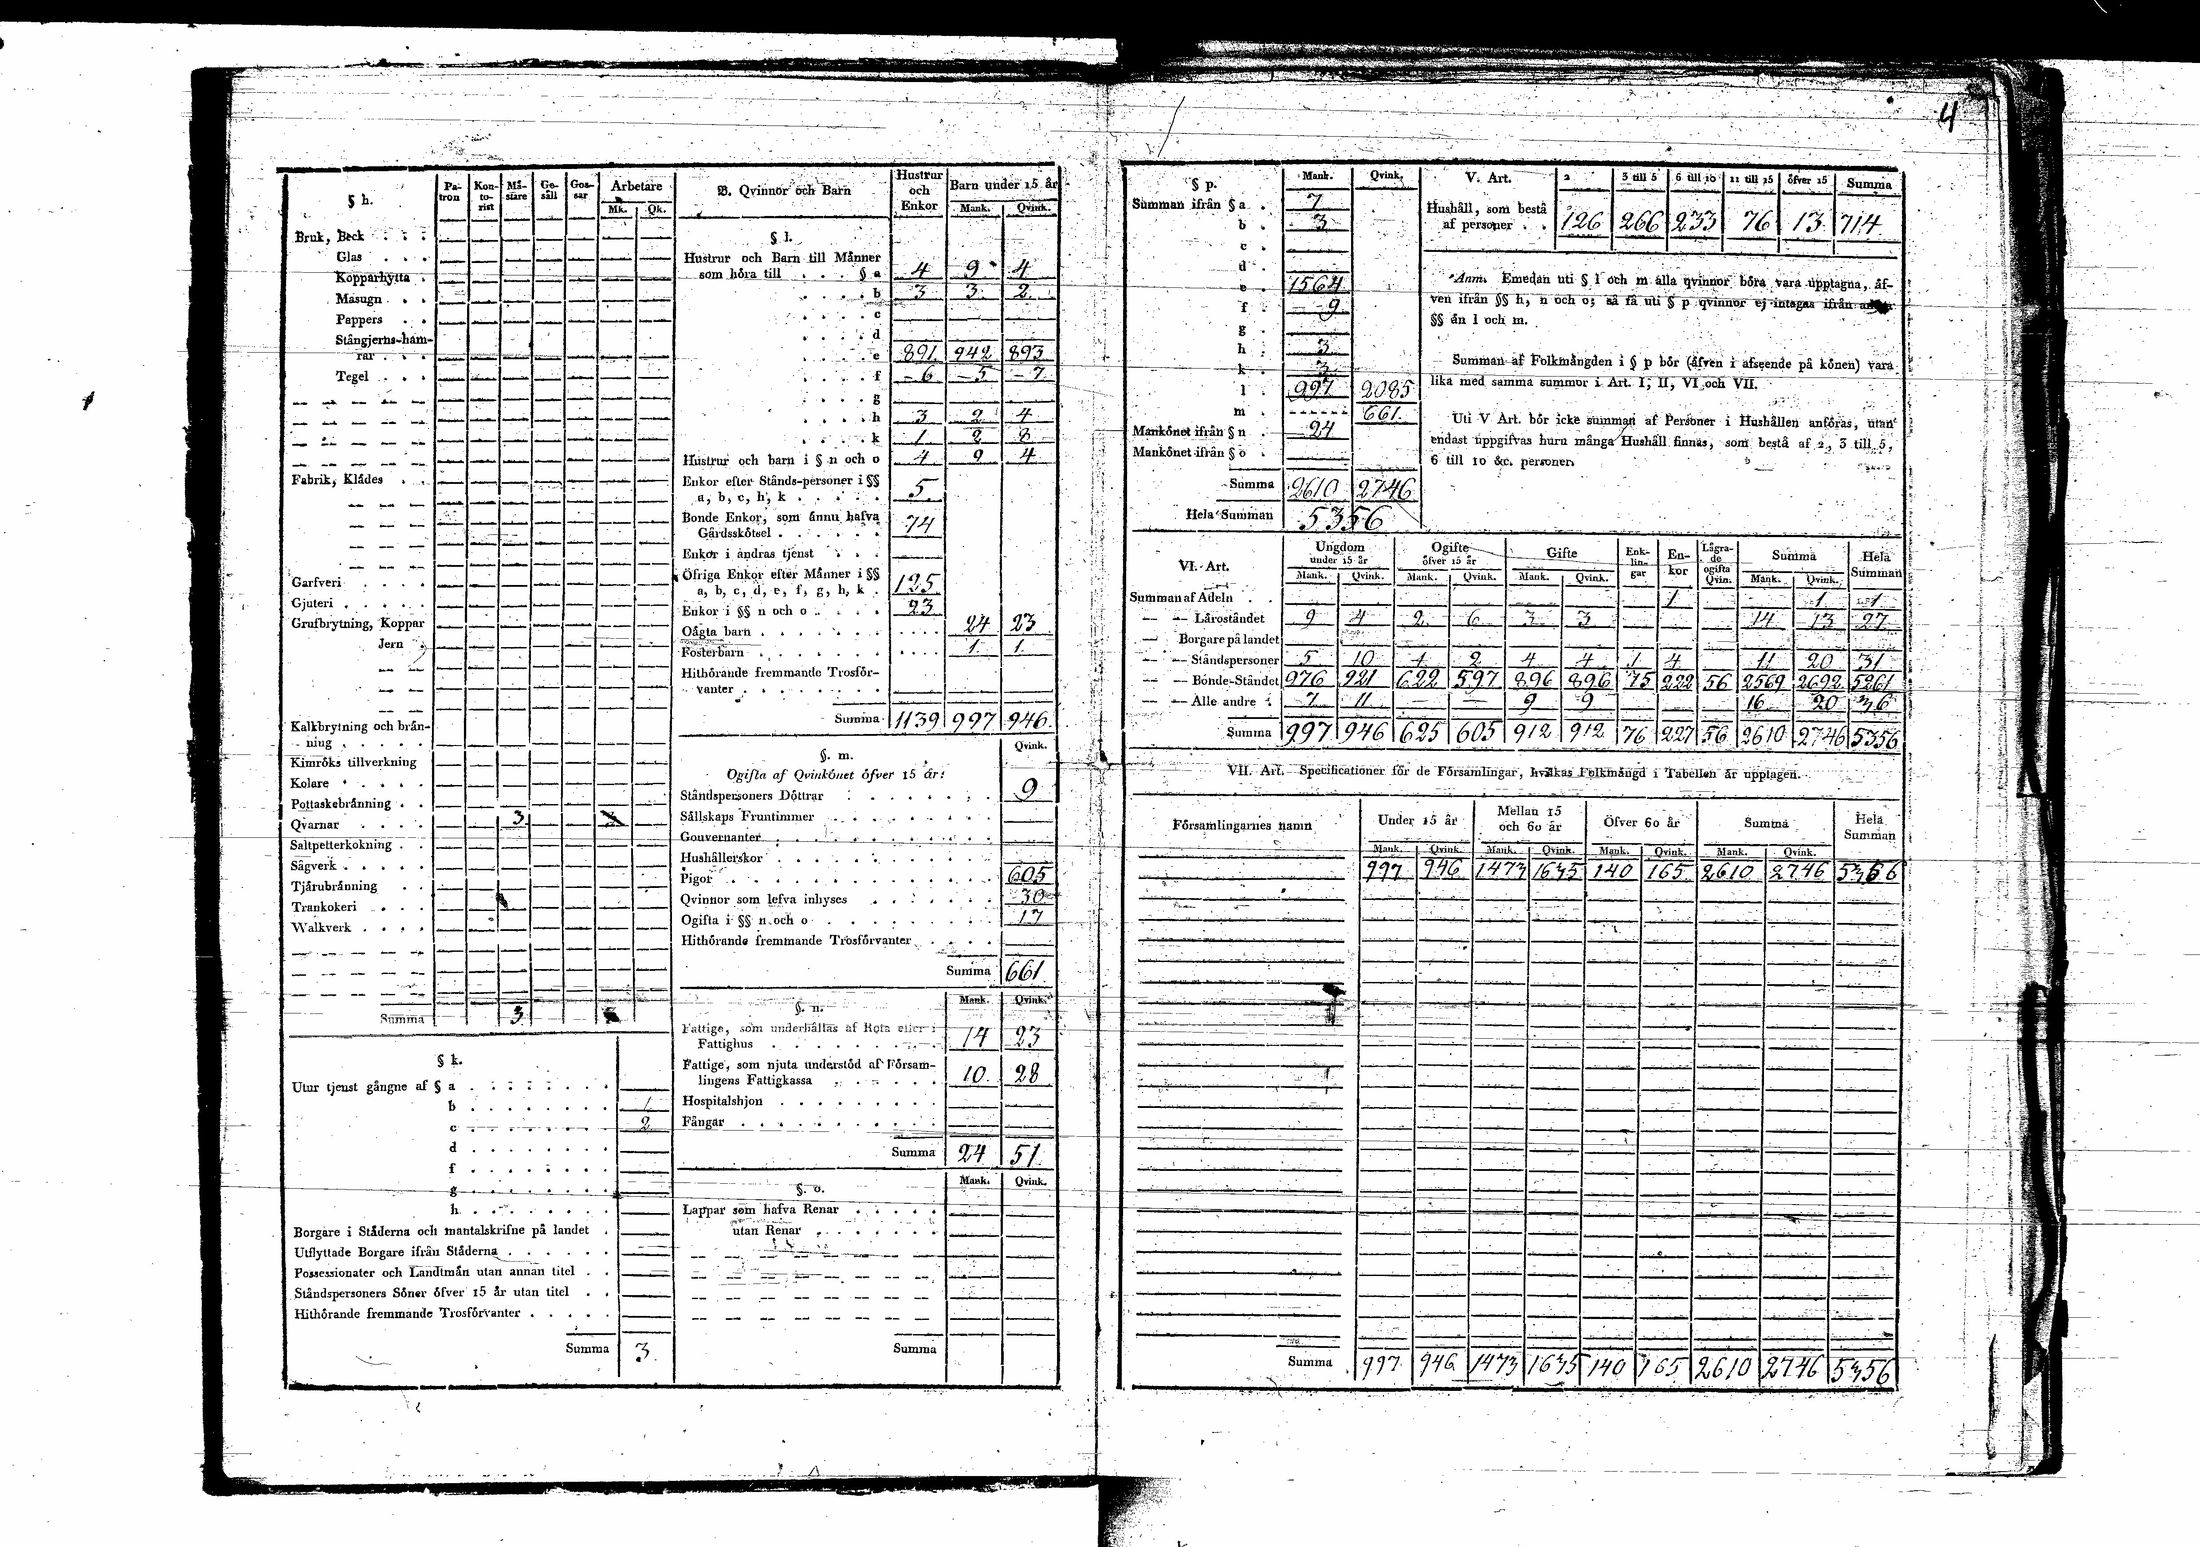 4
§ h.
Pa- tron Kon- to- rist Må- stare Ge- säll Gos- sar Arbetare
Mk. Qk.
Bruk, Beck . . .
Glas . . .
Kopparhytta .
Masugn . .
Pappers . .
Stångjerns-ham-
rar . . .
Tegel . . .
Fabrik, Klädes . .
Garfveri . . . .
Gjuteri . . . . .
Grufbrytning, Koppar
Jern .
Kalkbrytning och brän-
ning . . . . .
Kimröks tillverkning
Kolare . . . .
Pottaskebränning . .
Qvarnar . . . . 3
Saltpetterkokning . .
Sågverk . . . . .
Tjärubränning . .
Trankokeri . . .
Walkverk . . . .
Summa 3
§ k.
Utur tjenst gångne af § a . . . . . . .
b . . . . . . . 1
c . . . . . . . 2
d . . . . . . .
f . . . . . . .
g . . . . . . .
h . . . . . . .
Borgare i Städerna och mantalskrifne på landet .
Utflyttade Borgare ifrån Städerna . . . . . .
Possessionater och Landtmän utan annan titel . .
Ståndspersoners Söner öfver 15 år utan titel . .
Hithörande fremmande Trosförvanter . . . . .
Summa 3
B. Qvinnor och Barn
Hustrur och Enkor Barn under 15 år
Mank. Qvink.
§ l.
Hustrur och Barn till Männer
som höra till . . . § a 4 9 4
. . . . b 3 3 2
. . . . c
. . . . d
. . . . e 891 942 893
. . . . f 6 5 7
. . . . g
. . . . h 3 2 4
. . . . k 1 2 8
Hustrur och barn i § n och o 4 9 4
Enkor efter Stånds-personer i §§
a, b, c, h, k . . . . . 5
Bonde Enkor, som ännu hafva
Gårdsskötsel . . . . . . 74
Enkor i andras tjenst . . .
Öfriga Enkor efter Männer i §§
a, b, c, d, e, f, g, h, k . 125
Enkor i §§ n och o . . . . 23
Oägta barn . . . . . . . . . . . 24 23
Fosterbarn . . . . . . . . . . . 1 1
Hithörande fremmande Trosför-
vanter . . . . . . . .
Summa 1139 997 946
§. m.
Qvink.
Ogifta af Qvinkönet öfver 15 år:
Ståndspersoners Döttrar . . . . . . . 9
Sällskaps Fruntimmer . . . . . . . .
Gouvernanter . . . . . . . . . . .
Hushållerskor . . . . . . . . . . .
Pigor . . . . . . . . . . . . . 605
Qvinnor som lefva inhyses . . . . . . 30
Ogifta i §§ n och o . . . . . . . . 17
Hithörande fremmande Trosförvanter . . . .
Summa 661
§. n.
Mank. Qvink.
Fattige, som underhållas af Rota eller i
Fattighus . . . . . . . . . 14 23
Fattige, som njuta understöd af Försam-
lingens Fattigkassa . . . . . . 10 28
Hospitalshjon . . . . . . . . .
Fångar . . . . . . . . . . .
Summa 24 51
§. o.
Mank. Qvink.
Lappar som hafva Renar . . . . .
utan Renar . . . . . . .
Summa
§ p.
Mank. Qvink.
Summan ifrån § a . 7
b . 3
c .
d .
e . 1564
f . 9
g .
h . 3
k . 3
l . 997 2085
m . 661
Mankönet ifrån § n . 24
Mankönet ifrån § o .
Summa 2610 2746
Hela Summan 5356
V. Art. 2 3 till 5 6 till 10 11 till 15 öfver 15 Summa
Hushåll, som bestå
af personer . . 126 266 233 76 13 714
Anm. Emedan uti § l och m alla qvinnor böra vara upptagna, äf-
ven ifrån §§ h, n och o; så få uti § p qvinnor ej intagas ifrån andra
§§ än l och m.
Summan af Folkmängden i § p bör (äfven i afseende på könen) vara
lika med samma summor i Art. I, II, VI och VII.
Uti V Art. bör icke summan af Personer i Hushållen anföras, utan
endast uppgifvas huru många Hushåll finnas, som bestå af 2, 3 till 5,
6 till 10 &c. personer.
VI. Art.
Ungdom under 15 år Ogifte öfver 15 år Gifte Enk- lin- gar En- kor Lägra- de ogifta Qvin. Summa Hela Summan
Mank. Qvink. Mank. Qvink. Mank. Qvink. Mank. Qvink.
Summan af Adeln . . 1 1 1
— — Läroståndet 9 4 2 6 3 3 14 13 27
— Borgare på landet
— — Ståndspersoner 5 10 1 2 4 4 1 4 11 20 31
— — Bonde-Ståndet 976 921 622 597 896 896 75 222 56 2569 2692 5261
— — Alle andre . 7 11 — — 9 9 16 20 36
Summa 997 946 625 605 912 912 76 227 56 2610 2746 5356
VII. Art. Specificationer för de Församlingar, hvilkas Folkmängd i Tabellen är upptagen.
Församlingarnes namn Under 15 år Mellan 15 och 60 år Öfver 60 år Summa Hela Summan
Mank. Qvink. Mank. Qvink. Mank. Qvink. Mank. Qvink.
997 946 1473 1635 140 165 2610 2746 5356
Summa 997 946 1473 1635 140 165 2610 2746 5356